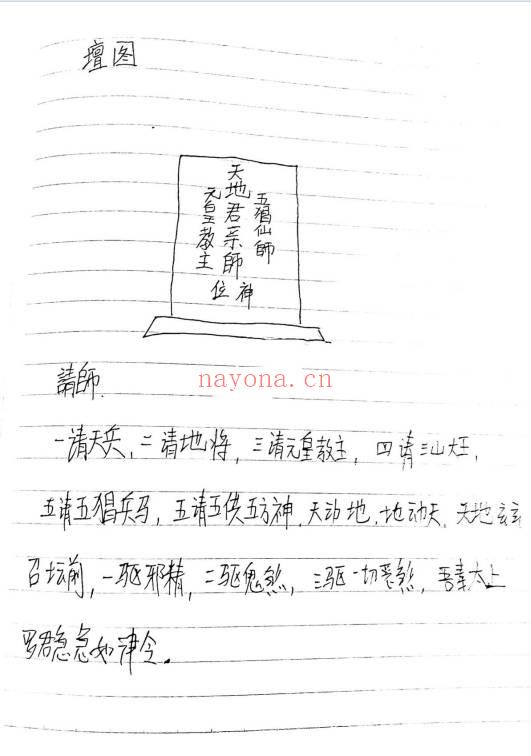 壇图
天地君亲師
元皇教主
五猖仙師
位神
nayona.cn
請師.
一请天兵,二请地将,三请元皇教主,四请三山
五请五猖兵马,五请五供五方神,天动地,地动天,天地玄玄
召坛前,一驱邪精,二驱鬼煞,三驱一切恶煞,吾奉太上
罗君急急如律令。